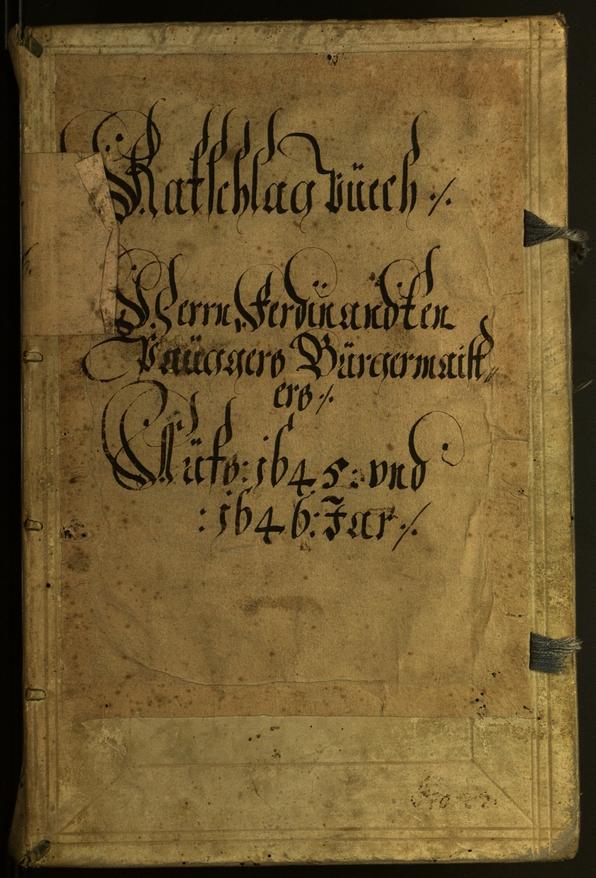 Ratschlag Büech ./.
Herrn Ferdinandten
Paüggers Bürgermaist„
ers ./.
Aüfs: 1645: vnd
: 1646: Jar ./.